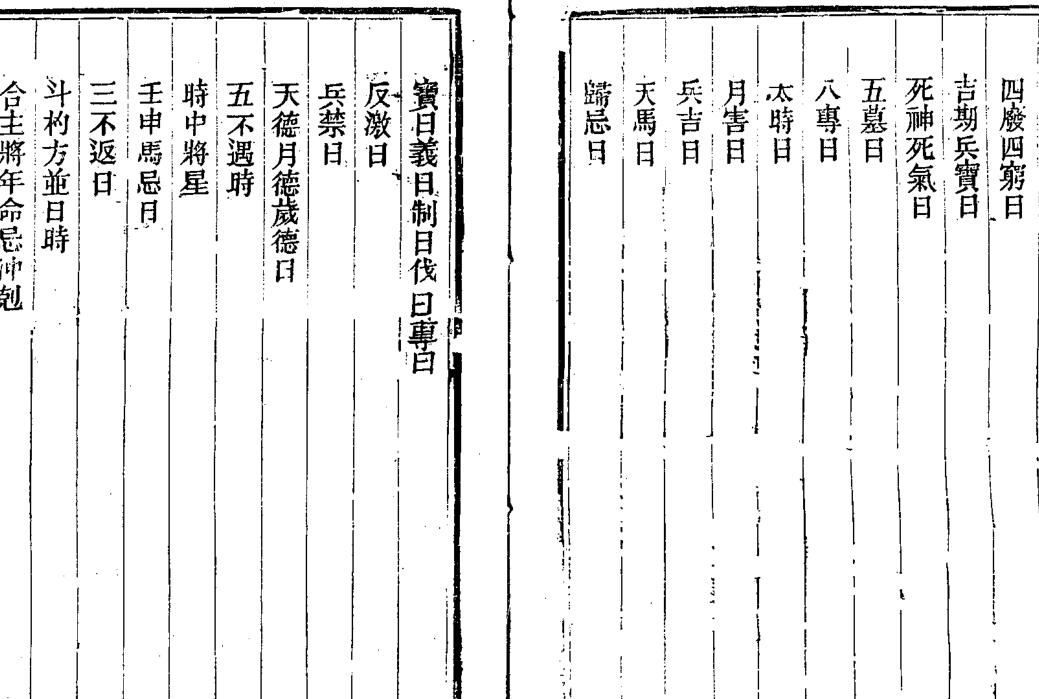 四廢四窮日
吉期兵寶日
死神死氣日
五墓日
八專日
大時日
月害日
兵吉日
天馬日
歸忌日
寶日義日制日伐日專日
反激日
兵禁日
天德月德歲德日
五不遇時
時中將星
壬申馬忌日
三不返日
斗杓方並日時
合主將年命忌沖剋